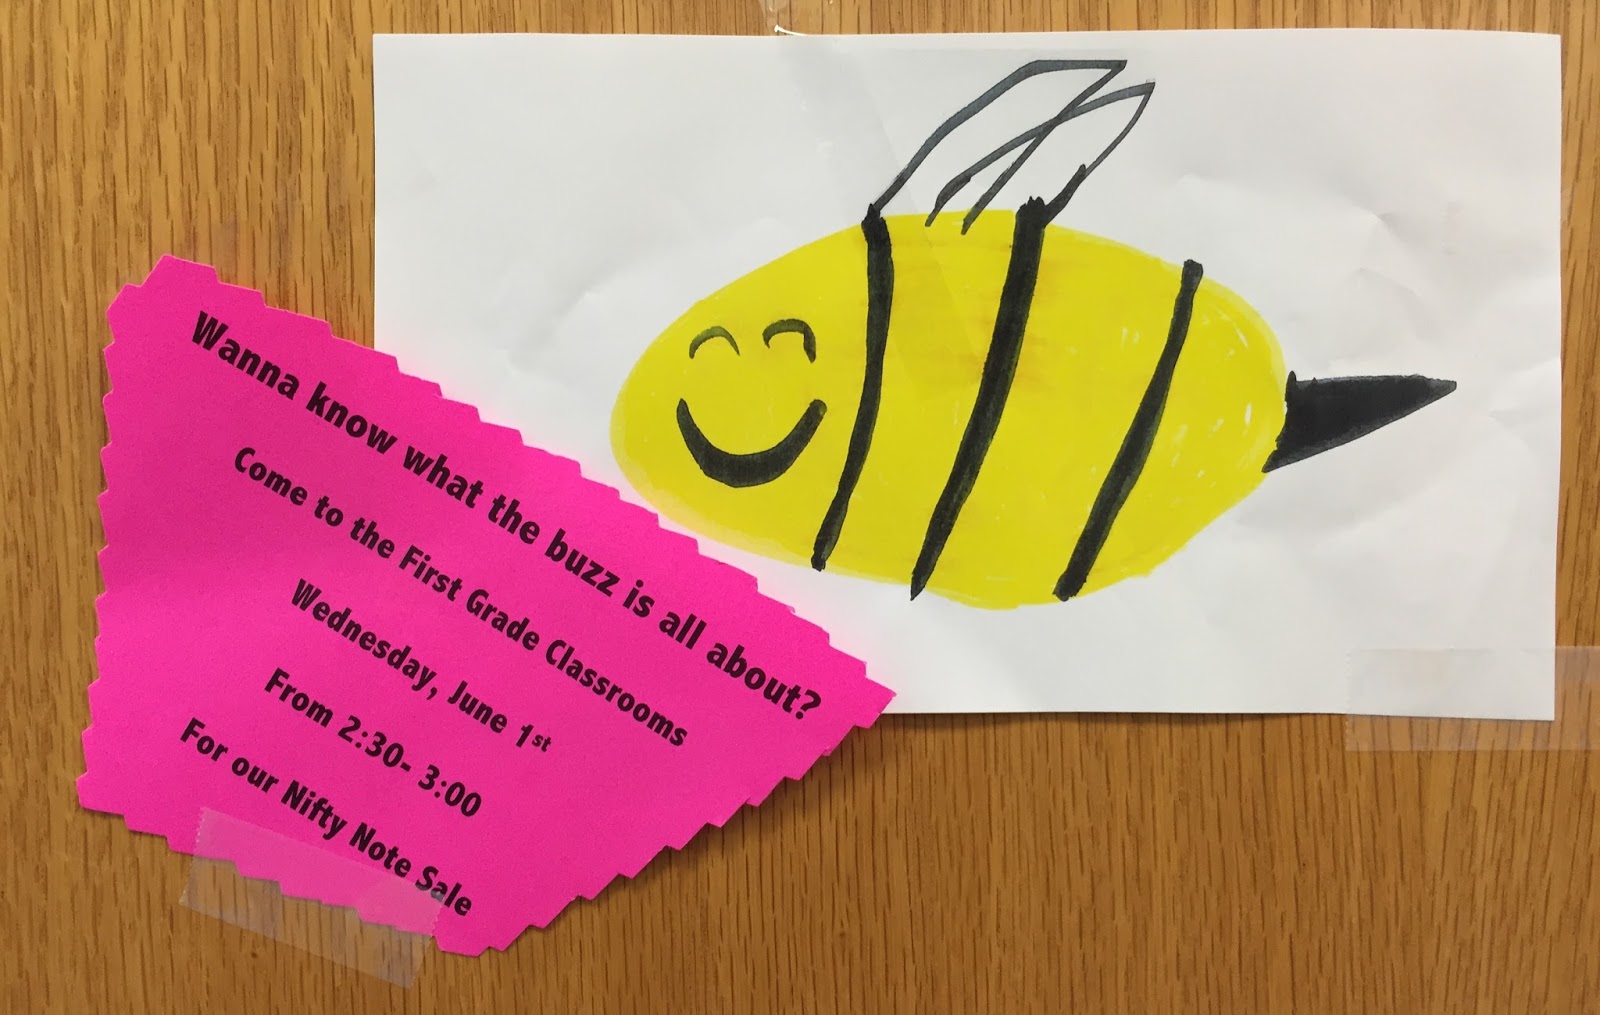 Wanna know what the buzz is all about?
Come to the First Grade Classrooms
Wednesday, June 1st
From 2:30- 3:00
For our Nifty Note Sale